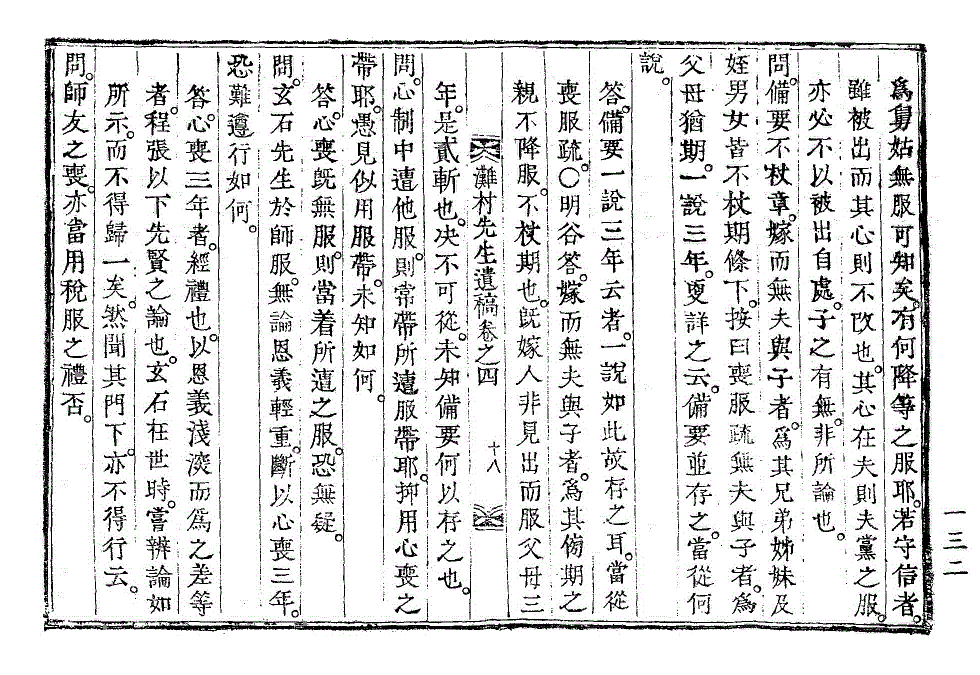 爲舅姑無服可知矣。有何降等之服耶。若守信者。
雖被出而其心則不改也。其心在夫則夫黨之服。
亦必不以被出自處。子之有無。非所論也。
問。備要不杖章。嫁而無夫與子者。爲其兄弟姊妹及
姪男女皆不杖期條下。按曰喪服疏無夫與子者。爲
父母猶期。一說三年。更詳之云。備要並存之。當從何
說。
答。備要一說三年云者。一說如此故存之耳。當從
喪服疏。○明谷答。嫁而無夫與子者。爲其傍期之
親不降服。不杖期也。旣嫁人非見出而服父母三
灘村先生遺稿卷之四 十八
年。是貳斬也。决不可從。未知備要何以存之也。
問。心制中遭他服。則常帶所遭服帶耶。抑用心喪之
帶耶。愚見似用服帶。未知如何。
答。心喪旣無服。則當着所遭之服。恐無疑。
問。玄石先生於師服。無論恩義輕重。斷以心喪三年。
恐難遵行如何。
答。心喪三年者。經禮也。以恩義淺深而爲之差等
者。程張以下先賢之論也。玄石在世時。嘗辨論如
所示。而不得歸一矣。然聞其門下。亦不得行云。
問。師友之喪。亦當用稅服之禮否。
一三二